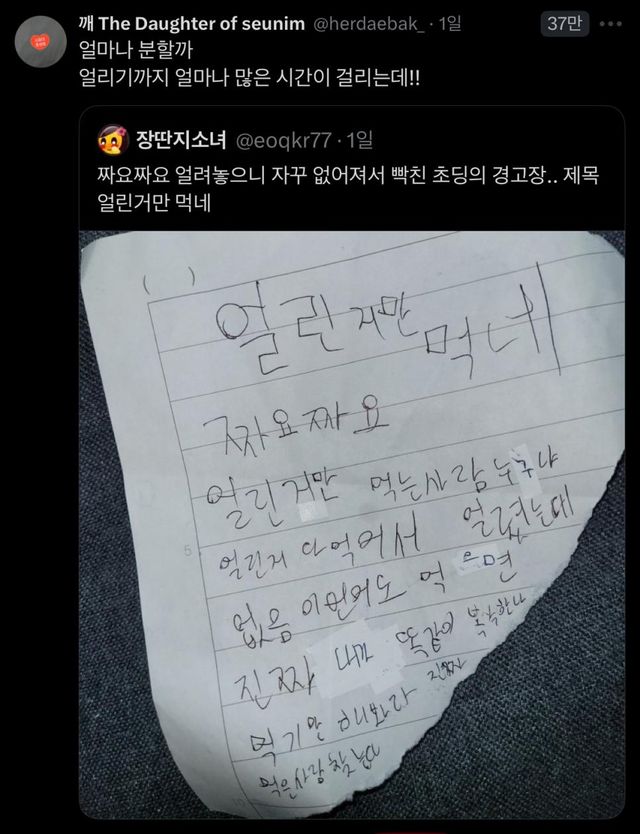 깨 The Daughter of seunim @herdaebak_ · 1일
37만
얼마나 분할까
얼리기까지 얼마나 많은 시간이 걸리는데!!
장딴지소녀 @eoqkr77 · 1일
짜요짜요 얼려놓으니 자꾸 없어져서 빡친 초딩의 경고장.. 제목
얼린거만 먹네
( )
얼린거만 먹네
짜요짜요
얼린거만 먹는사람 누구냐
5
얼린거 다 먹어서 얼렸는데
없음 이번에도 먹으면
진짜 내가 똑같이 복수한다
먹기만 해봐라 진짜
먹은사람 찾는다